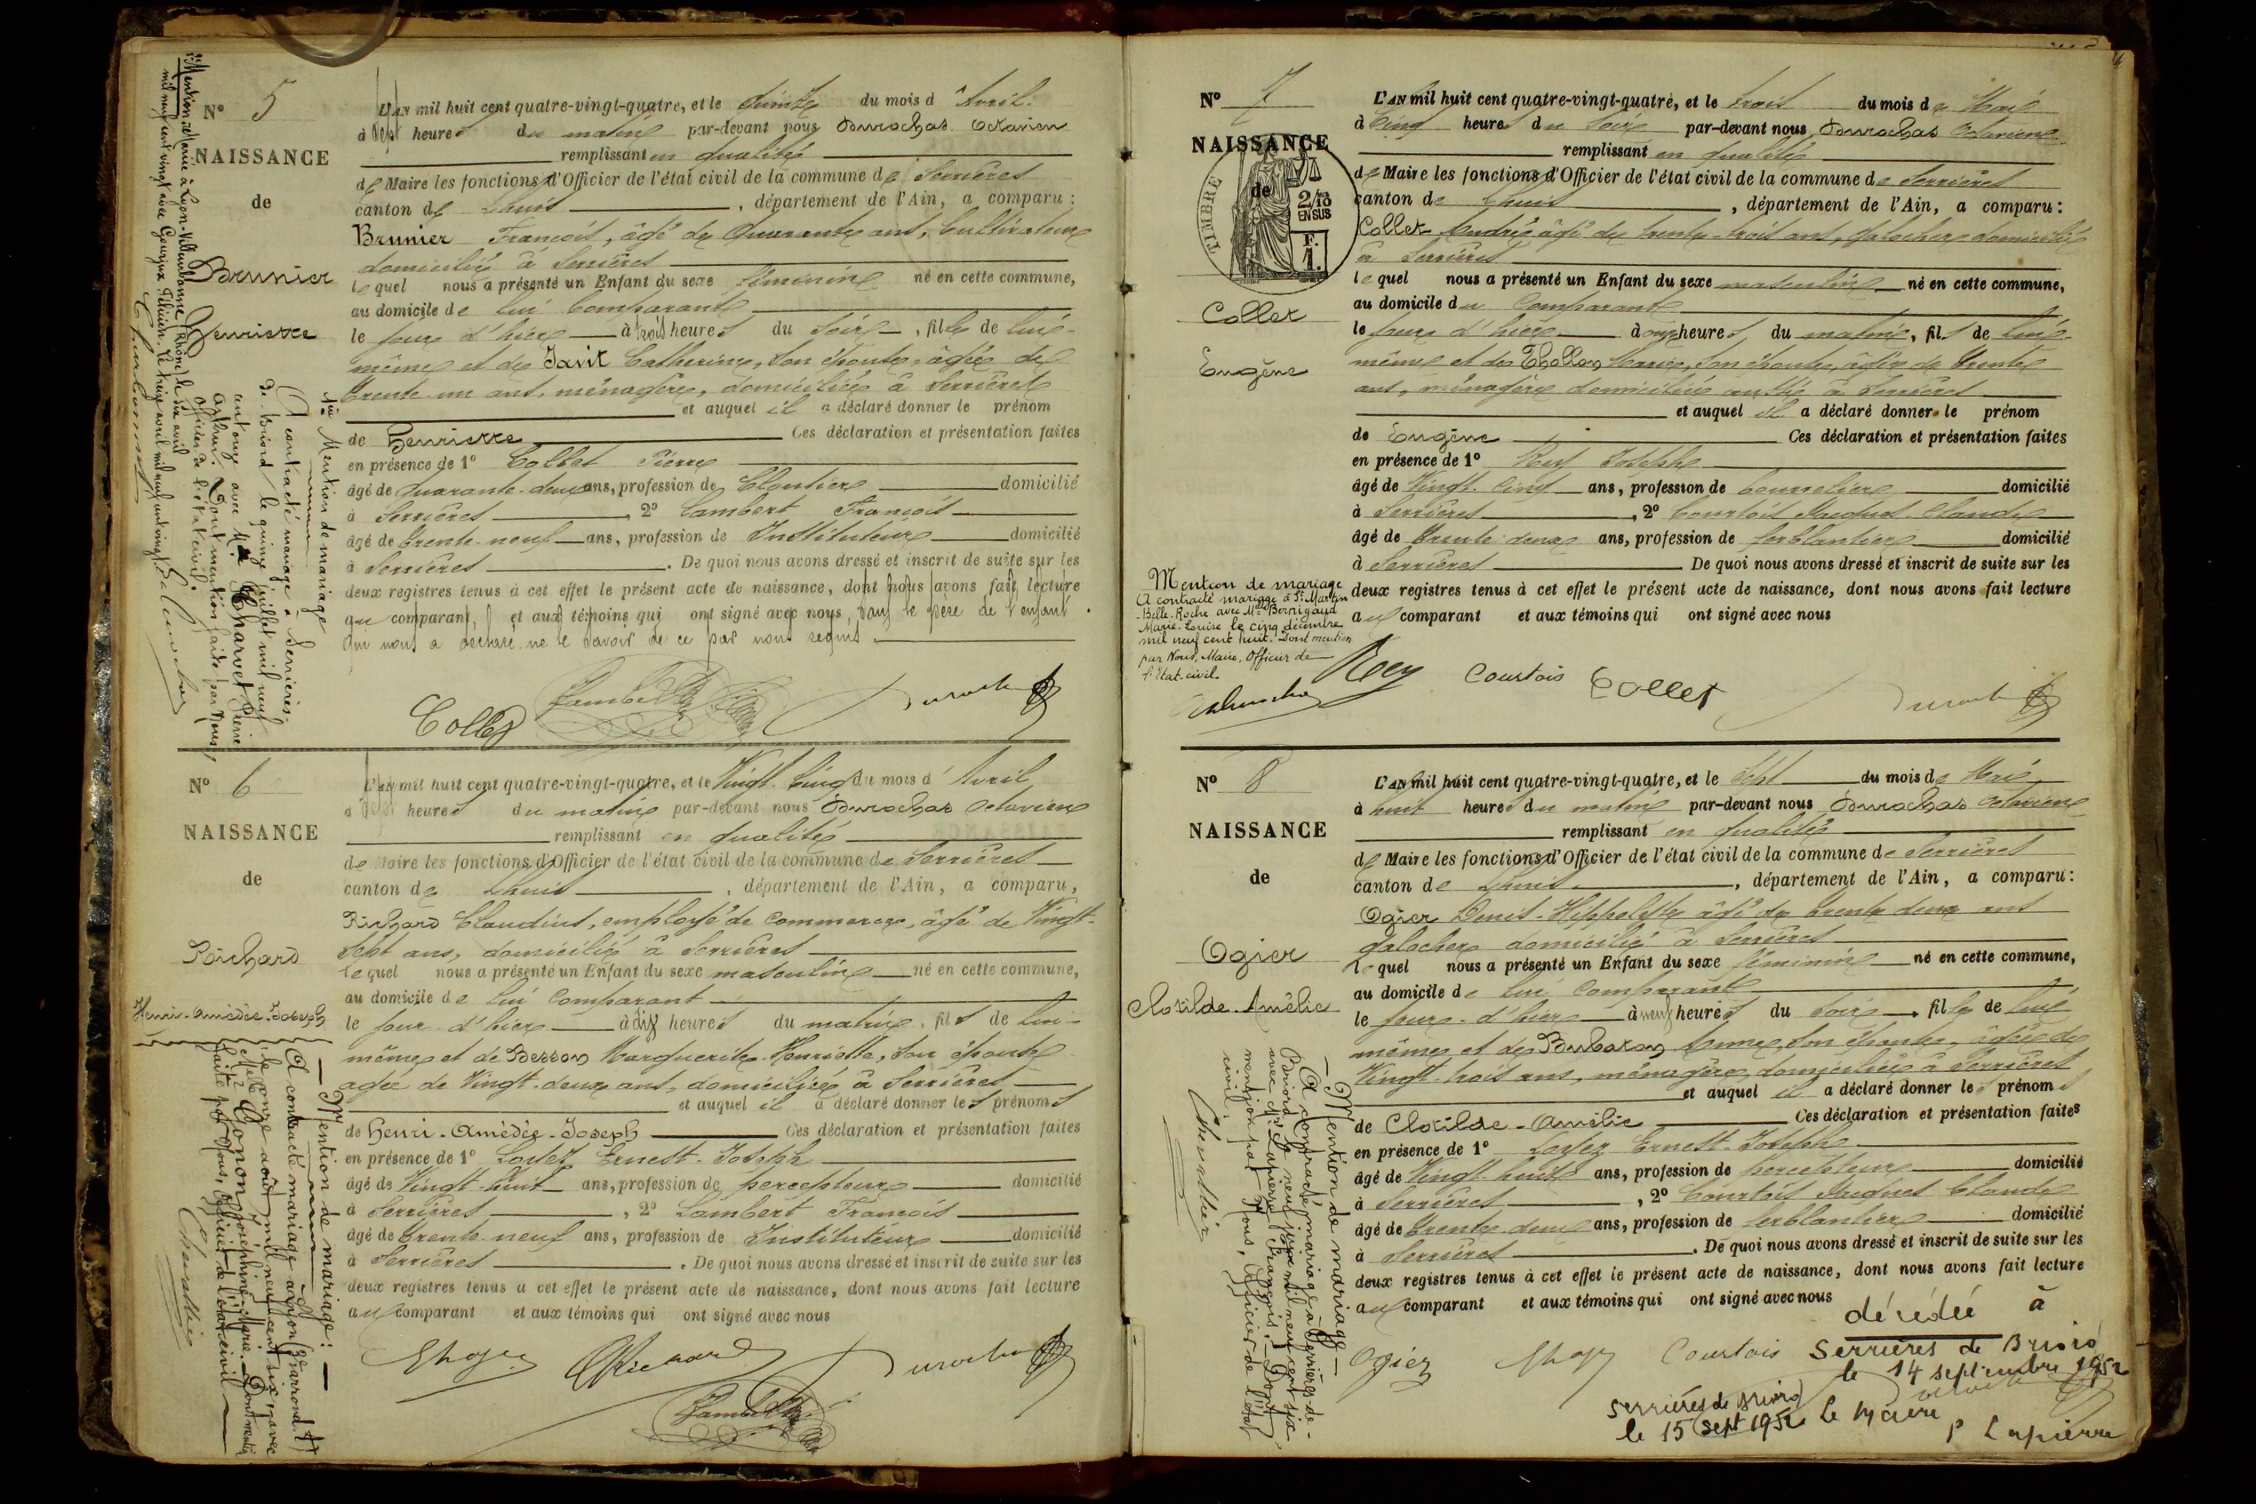 N° 5
NAISSANCE
de
Brunier
Henriette
L'AN mil huit cent quatre-vingt-quatre, et le quinze du mois d'Avril
à sept heures du matin par-devant nous Durochas Octavien
remplissant en qualité
de Maire les fonctions d'Officier de l'état civil de la commune de Serrières
canton de Lhuis, département de l'Ain, a comparu :
Brunier François, âgé de Quarante ans, Cultivateur
domicilié à Serrières
lequel nous a présenté un Enfant du sexe féminin né en cette commune,
au domicile de lui Comparant
le jour d'hier à trois heures du soir, fille de lui-
même et de Javit Catherine, son épouse, âgée de
trente un ans, ménagère, domiciliée à Serrières
et auquel il a déclaré donner le prénom
de Henriette Ces déclaration et présentation faites
en présence de 1° Collet Pierre
âgé de quarante-deux ans, profession de Cloutier domicilié
à Serrières, 2° Lambert François
âgé de trente-neuf ans, profession de Instituteur domicilié
à Serrières. De quoi nous avons dressé et inscrit de suite sur les
deux registres tenus à cet effet le présent acte de naissance, dont nous avons fait lecture
au comparant, et aux témoins qui ont signé avec nous, sauf le père de l'enfant
qui nous a déclaré ne le savoir de ce par nous requis.
Collet
Lambert
1re Mention de mariage
A contracté mariage à Serrières-
de-Briord, le quinze juillet mil neuf
cent onze avec Mr Charvet Pierre
Anthelme. Dont mention faite par Nous
officier de l'état civil.
2e Mention : Mariée à Lyon-Villeurbanne (Rhône) le six avril
mil neuf cent vingt avec Gourjux. Le treize avril mil neuf cent vingt
N° 6
NAISSANCE
de
Richard
Henri-Amédée-Joseph
L'AN mil huit cent quatre-vingt-quatre, et le Vingt-Cinq du mois d'Avril
à sept heures du matin par-devant nous Durochas Octavien
remplissant en qualité
de Maire les fonctions d'Officier de l'état civil de la commune de Serrières
canton de Lhuis, département de l'Ain, a comparu,
Richard Claudius, employé de Commerce, âgé de Vingt-
sept ans, domicilié à Serrières
lequel nous a présenté un Enfant du sexe masculin né en cette commune,
au domicile de lui Comparant
le jour d'hier à dix heures du matin, fils de lui-
même et de Besson Marguerite Henriette, son épouse
âgée de Vingt-deux ans, domiciliée à Serrières
et auquel il a déclaré donner les prénoms
de Henri-Amédée-Joseph Ces déclaration et présentation faites
en présence de 1° Loytez Ernest-Joseph
âgé de Vingt-huit ans, profession de percepteur domicilié
à Serrières, 2° Lambert François
âgé de trente-neuf ans, profession de Instituteur domicilié
à Serrières. De quoi nous avons dressé et inscrit de suite sur les
deux registres tenus à cet effet le présent acte de naissance, dont nous avons fait lecture
au comparant et aux témoins qui ont signé avec nous
Richard
Lambert
Mention de mariage :
A contracté mariage à Lyon (3e arrond.t)
le onze août mil neuf cent six, avec
Mlle Gonon Joséphine-Marie. Dont mention
faite par Nous, Officier de l'état civil
Chevallier
N° 7
NAISSANCE
de
TIMBRE
2/10
EN SUS
F.
1.
Collet
Eugène
L'AN mil huit cent quatre-vingt-quatre, et le trois du mois de Mai
à Cinq heures du Soir par-devant nous Durochas Octavien
remplissant en qualité
de Maire les fonctions d'Officier de l'état civil de la commune de Serrières
canton de Lhuis, département de l'Ain, a comparu :
Collet André âgé de trente-trois ans, galocher domicilié
à Serrières
lequel nous a présenté un Enfant du sexe masculin né en cette commune,
au domicile du Comparant
le jour d'hier à onze heures du matin, fils de lui-
même et de Thollon Marie, son épouse, âgée de trente
ans, ménagère domiciliée aussi à Serrières
et auquel il a déclaré donner le prénom
de Eugène Ces déclaration et présentation faites
en présence de 1° Rey Joseph
âgé de Vingt-Cinq ans, profession de bourrelier domicilié
à Serrières, 2° Courtois Jacques Claude
âgé de trente-deux ans, profession de ferblantier domicilié
à Serrières De quoi nous avons dressé et inscrit de suite sur les
deux registres tenus à cet effet le présent acte de naissance, dont nous avons fait lecture
au comparant et aux témoins qui ont signé avec nous
Mention de mariage
A contracté mariage à St Martin
Belle-Roche avec Mlle Bornigaud
Marie-Louise le cinq décembre
mil neuf cent huit. Dont mention
par Nous, Maire, Officier de
l'Etat-civil.
Rey Courtois Collet
N° 8
NAISSANCE
de
Ogier
Clotilde-Amélie
L'AN mil huit cent quatre-vingt-quatre, et le Sept du mois de Mai
à huit heures du matin par-devant nous Durochas Octavien
remplissant en qualité
de Maire les fonctions d'Officier de l'état civil de la commune de Serrières
canton de Lhuis, département de l'Ain, a comparu :
Ogier Denis-Hippolyte âgé de trente deux ans
galocher domicilié à Serrières
lequel nous a présenté un Enfant du sexe féminin né en cette commune,
au domicile de lui Comparant
le jour d'hier à neuf heures du soir, fille de lui
même et de Burbaron Anne, son épouse, âgée de
Vingt-trois ans, ménagère, domiciliée à Serrières
et auquel il a déclaré donner les prénoms
de Clotilde-Amélie Ces déclaration et présentation faites
en présence de 1° Loytez Ernest-Joseph
âgé de Vingt-huit ans, profession de percepteur domicilié
à Serrières, 2° Courtois Jacques Claude
âgé de trente deux ans, profession de ferblantier domicilié
à Serrières. De quoi nous avons dressé et inscrit de suite sur les
deux registres tenus à cet effet le présent acte de naissance, dont nous avons fait lecture
au comparant et aux témoins qui ont signé avec nous
Ogier Courtois
Mention de mariage
A contracté mariage à Serrières-de-
Briord, le neuf juin mil neuf cent six
avec Mr Lapierre François. Dont
mention par Nous, Officier de l'état
civil.
Chevallier
décédée à
Serrières de Briord
le 14 septembre 1952
Serrières de Briord
le 15 sept 1952 le Maire
P Lapierre